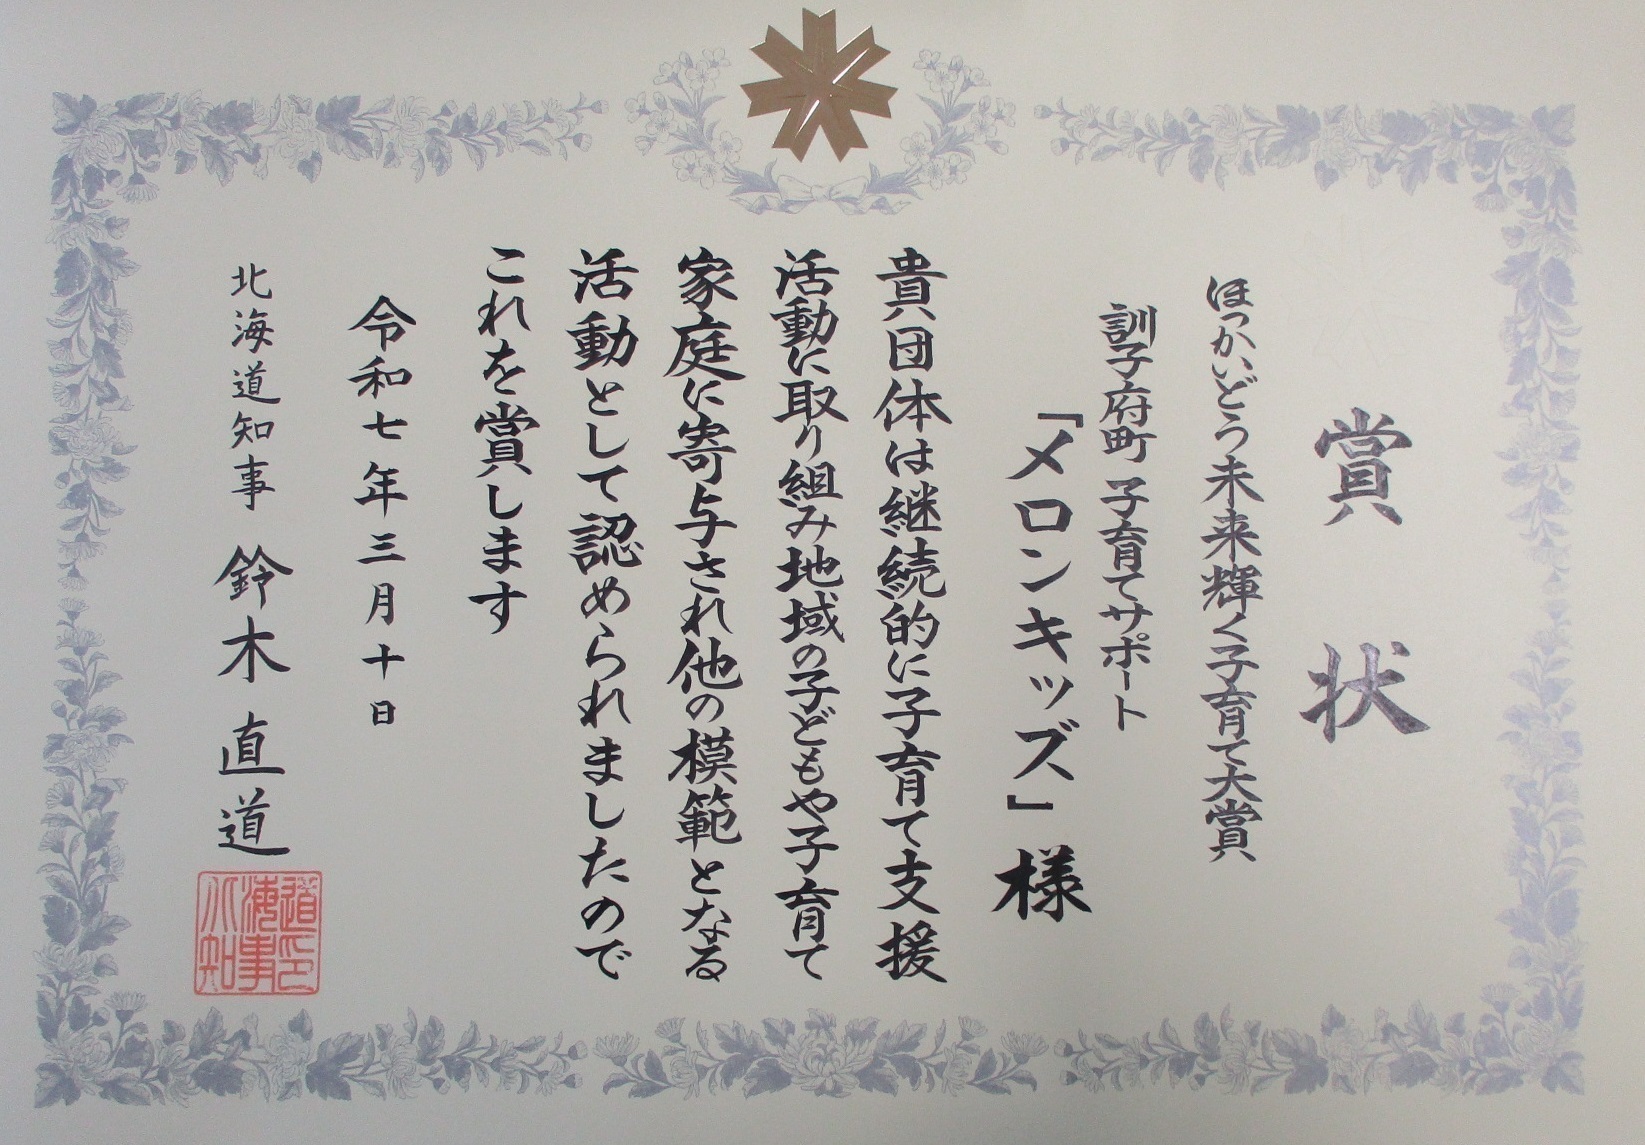 賞状
ほっかいどう未来輝く子育て大賞
訓子府町 子育てサポート
「メロンキッズ」様
貴団体は継続的に子育て支援
活動に取り組み地域の子どもや子育て
家庭に寄与され他の模範となる
活動として認められましたので
これを賞します
令和七年三月十日
北海道知事 鈴木直道